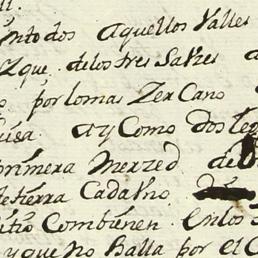 into dos aquellos Valles
zque. delos tres Salzes
por lomas Zercano
uisa. ay Como dos leg
primera Merzed de
detierra Cadavno
sitio Combienen. enlos
y que no halla por el C